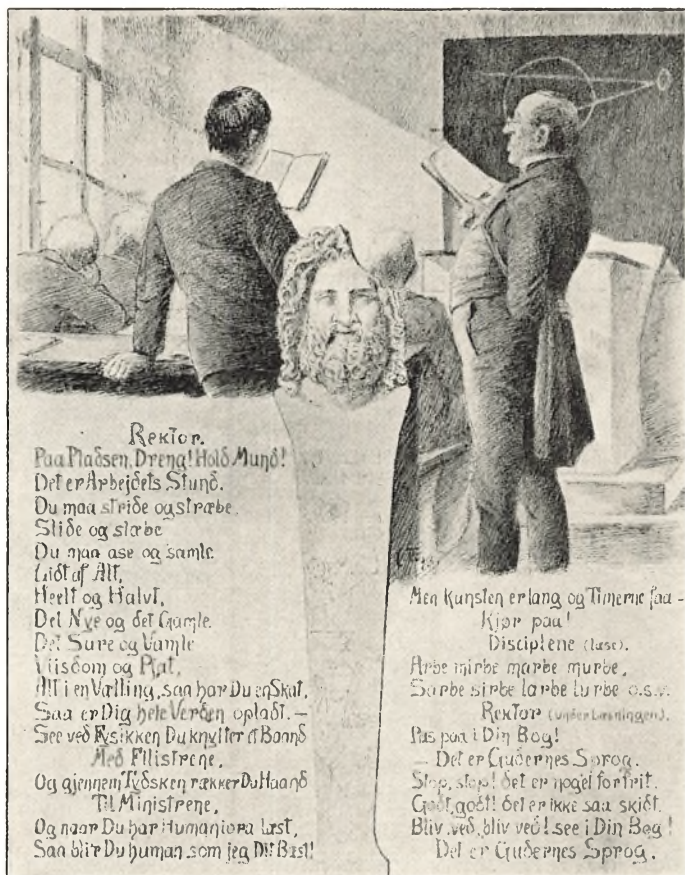 Rektor.
Paa Pladsen, Dreng! Hold Mund!
Det er Arbejdets Stund.
Du maa stride og stræbe,
Slide og slæbe
Du maa ase og samle
Lidt af Alt,
Heelt og Halvt,
Det Nye og det Gamle
Det Sure og Vamle
Viisdom og Pjat,
Alt i en Vælling, saa har Du en Skat,
Saa er Dig hele Verden opladt. —
See ved Fysikken Du knytter et Baand
Med Filistrene,
Og gjennem Tydsken rækker Du Haand
Til Ministrene,
Og naar Du har Humaniora læst,
Saa bli'r Du human som jeg Dit Bæst!
Men Kunsten er lang og Timerne faa —
Kjør paa!
Disciplene (læse).
Arbe mirbe marbe murbe,
Sarbe sirbe larbe lurbe o.s.v.
Rektor (under Læsningen).
Pas paa i Din Bog!
— Det er Gudernes Sprog.
Stop, stop! det er noget forfrit.
Godt, godt! det er ikke saa skidt.
Bliv ved, bliv ved! see i Din Bog!
Det er Gudernes Sprog.